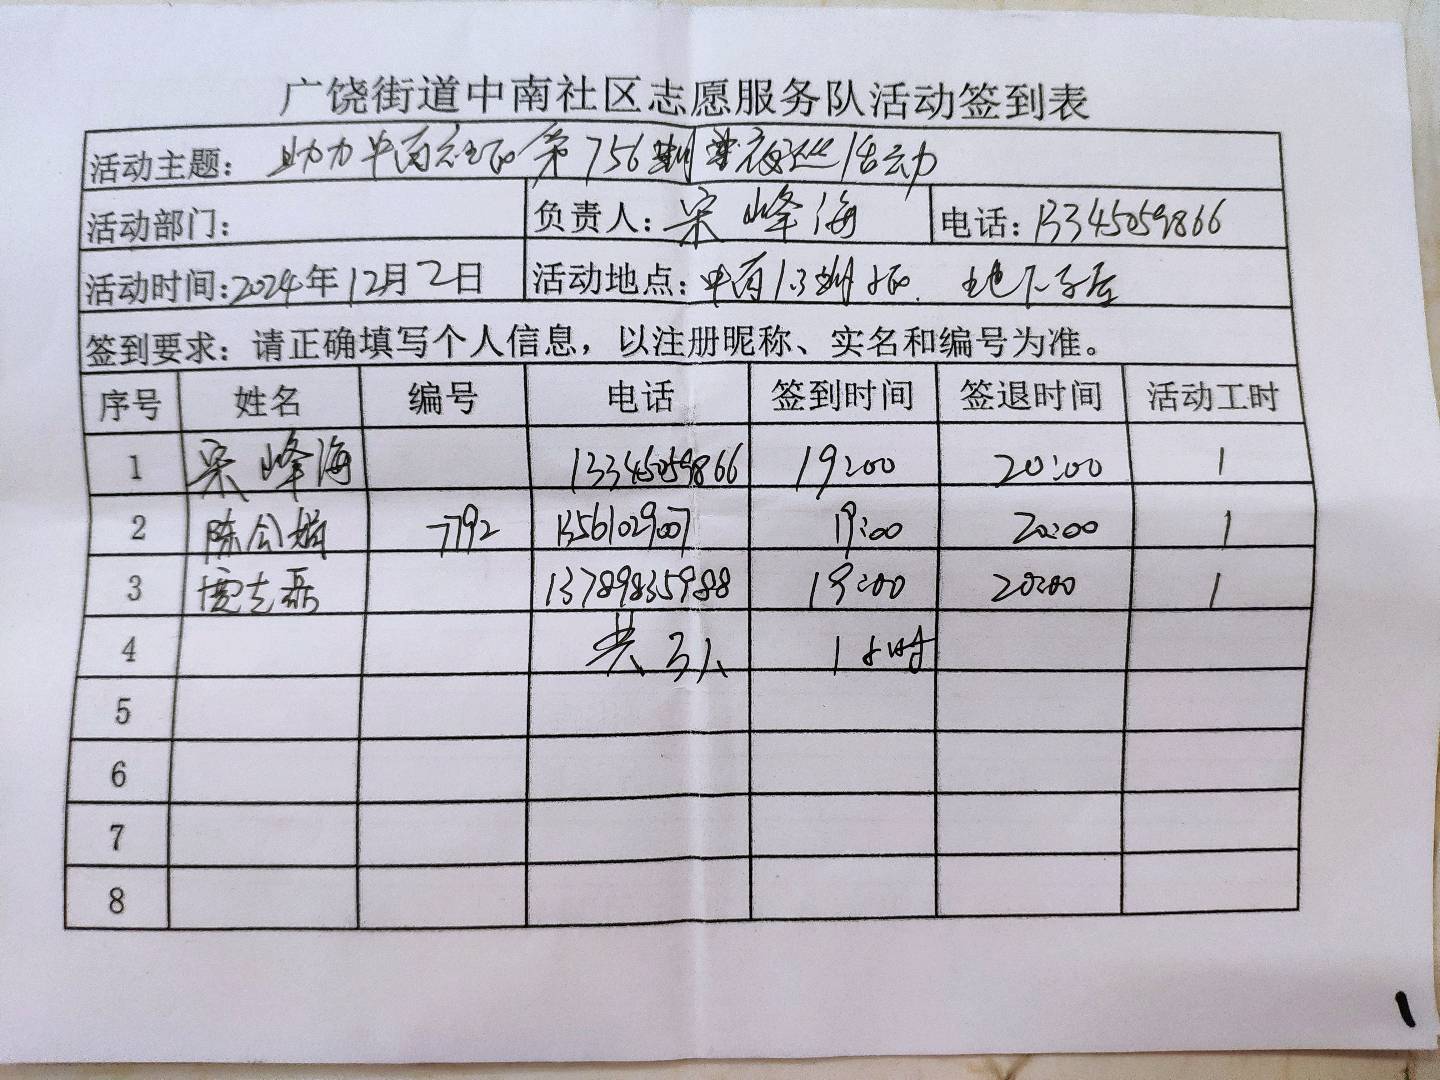 广饶街道中南社区志愿服务队活动签到表
活动主题：助力中南社区第756期 夜巡活动
活动部门： 负责人：宋峰海 电话：13345059866
活动时间：2024年12月2日 活动地点：中南 期 地下
签到要求：请正确填写个人信息，以注册昵称、实名和编号为准。
序号 姓名 编号 电话 签到时间 签退时间 活动工时
1 宋峰海 13345059866 19:00 20:00 1
2 陈公 7792 13561029007 19:00 20:00 1
3 磊 13789835988 19:00 20:00 1
4 共3人 1小时
5
6
7
8
1